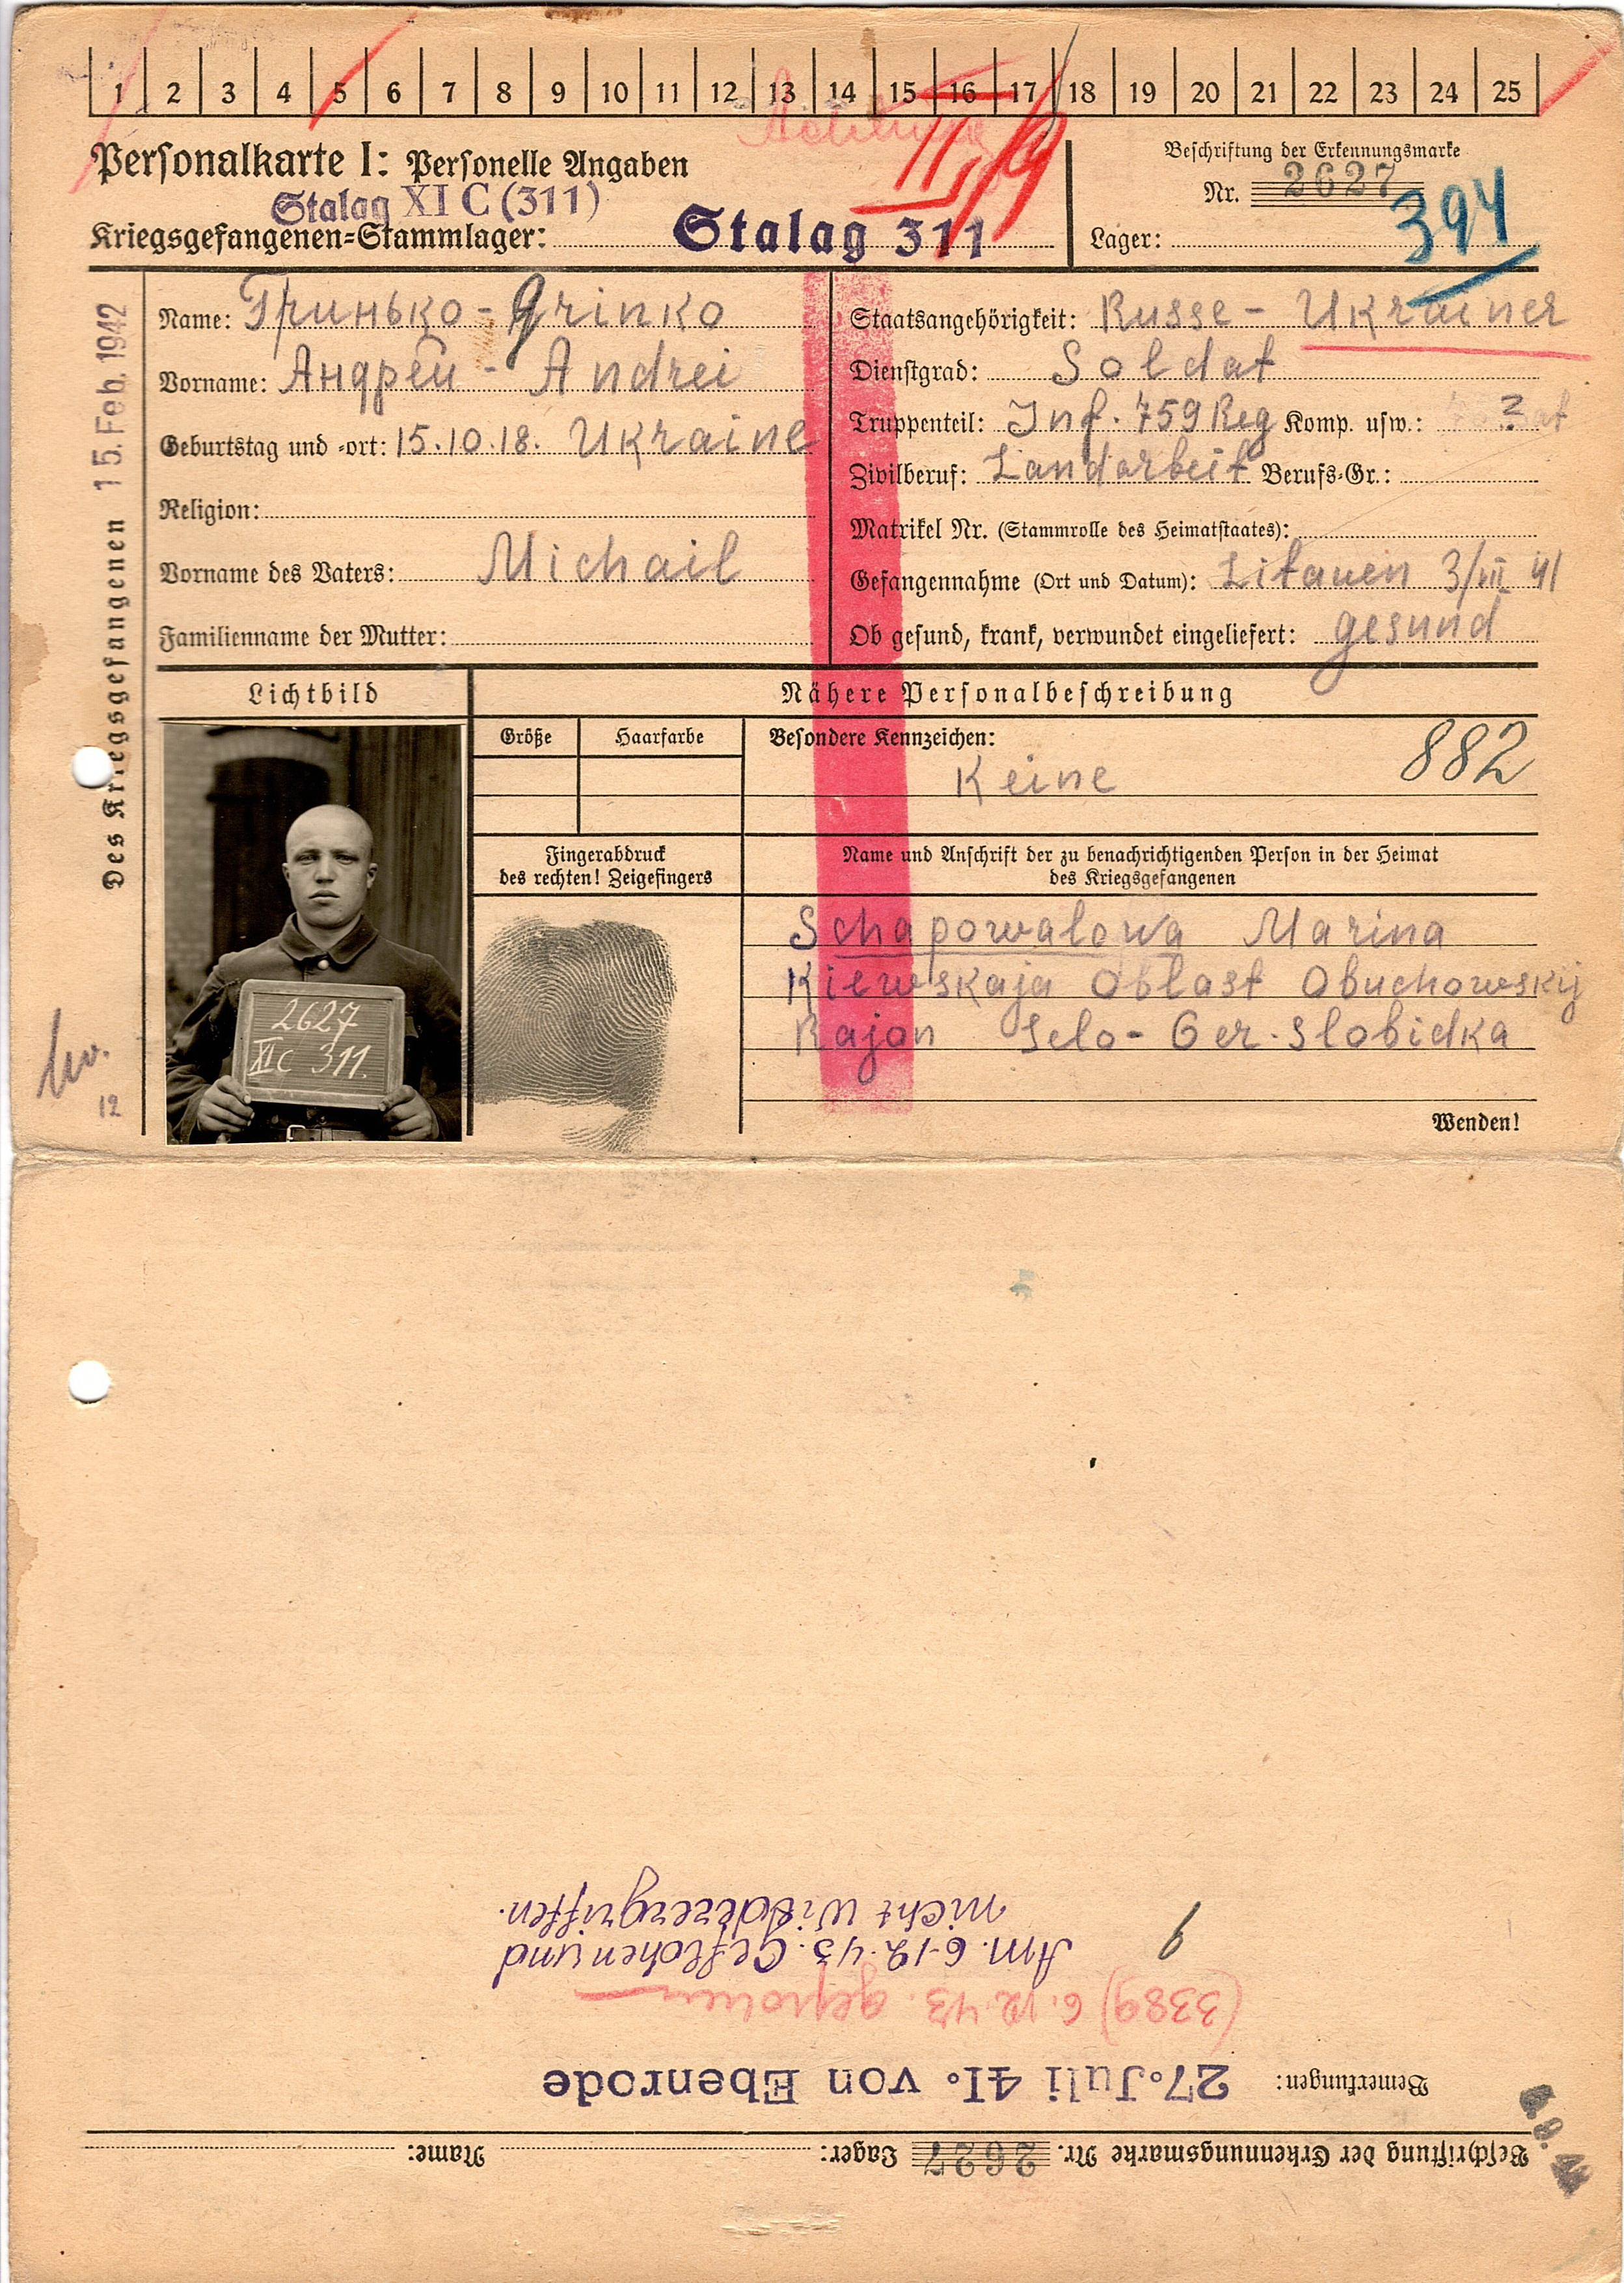 1 2 3 4 5 6 7 8 9 10 11 12 13 14 15 16 17 18 19 20 21 22 23 24 25
Achtung
Personalkarte I: Personelle Angaben
Beschriftung der Erkennungsmarke
Stalag XI C (311)
Nr. 2627
394
Kriegsgefangenen=Stammlager: Stalag 311
Lager:
Des Kriegsgefangenen 15. Feb. 1942
Name: Гринько - Grinko
Vorname: Андрей - Andrei
Geburtstag und =ort: 15.10.18. Ukraine
Religion:
Vorname des Vaters: Michail
Familienname der Mutter:
Staatsangehörigkeit: Russe - Ukrainer
Dienstgrad: Soldat
Truppenteil: Inf. 759 Reg Komp. usw.: ?
Zivilberuf: Landarbeit Berufs=Gr.:
Matrikel Nr. (Stammrolle des Heimatstaates):
Gefangennahme (Ort und Datum): Litauen 3/VII 41
Ob gesund, krank, verwundet eingeliefert: gesund
Lichtbild
Nähere Personalbeschreibung
Größe
Haarfarbe
Besondere Kennzeichen:
Keine
882
Fingerabdruck
des rechten! Zeigefingers
Name und Anschrift der zu benachrichtigenden Person in der Heimat
des Kriegsgefangenen
Schapowalowa Marina
Kiewskaja Oblast Obuchowskij
Rajon Selo - Ger. Slobidka
2627
XI C 311.
12
Wenden!
Beschriftung der Erkennungsmarke Nr. 2627 Lager: Name:
Bemerkungen: 27. Juli 41. von Ebenrode
(3389) 6.12.43. geflohen
Am. 6-12.43. Geflohen und
nicht Widerergriffen.
9